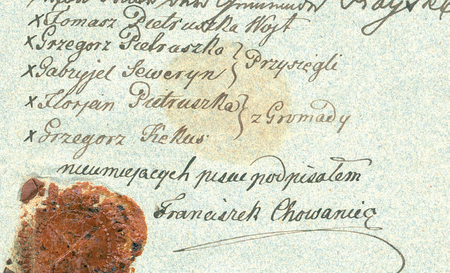 xTomasz Pietruszka Wojt
xGrzegorz Pietraszka } Przysięgli
xGabryjel Seweryn
xFlorjein Pietruszka } z Gromady
xGrzegorz Kękus
nieumiejących pisać podpisałem
Franciszek Chowaniec